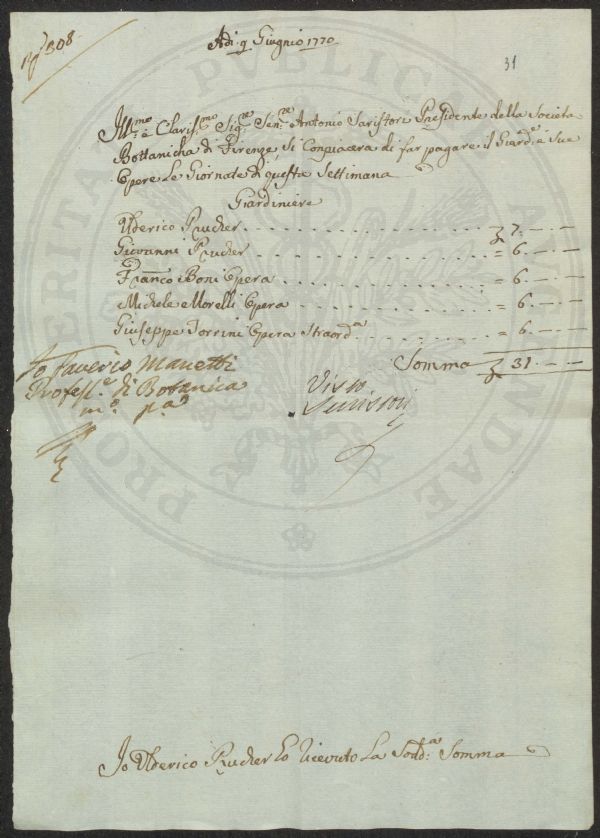 N° 308
Adi 9 Giugnio 1770
31
Ill:mo e Claris:mo Sig:re Sen:re Antonio Saristori Presidente della Societa
Bottanicha di Firenze Si Conpiacera di far pagare il Giard:e e Sue
Opere Le Giornate di questa Settimana
Giardiniere
Ulderico Rucher 7. — —
Giovanni Rucher = 6. — —
Fran:co Boni Opera = 6. — —
Michele Morelli Opera = 6. — —
Giuseppe Torrini Opera Straord:a = 6. — —
Somma 31. — —
Io Saverio Manetti
Profess:e di Botanica
m:o p:a
Visto
Io Ulderico Rucher Ho Ricevuto La Sodd:a Somma
PRO PUBLICA AUGENDAE